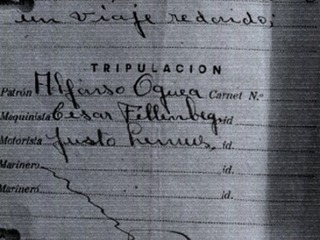 un viaje redondo;
TRIPULACION
Patrón Alfonso Oquea Carnet N.º
Maquinista Cesar Fillenberg, id
Motorista Justo Lemus, id.
Marinero id.
Marinero id.